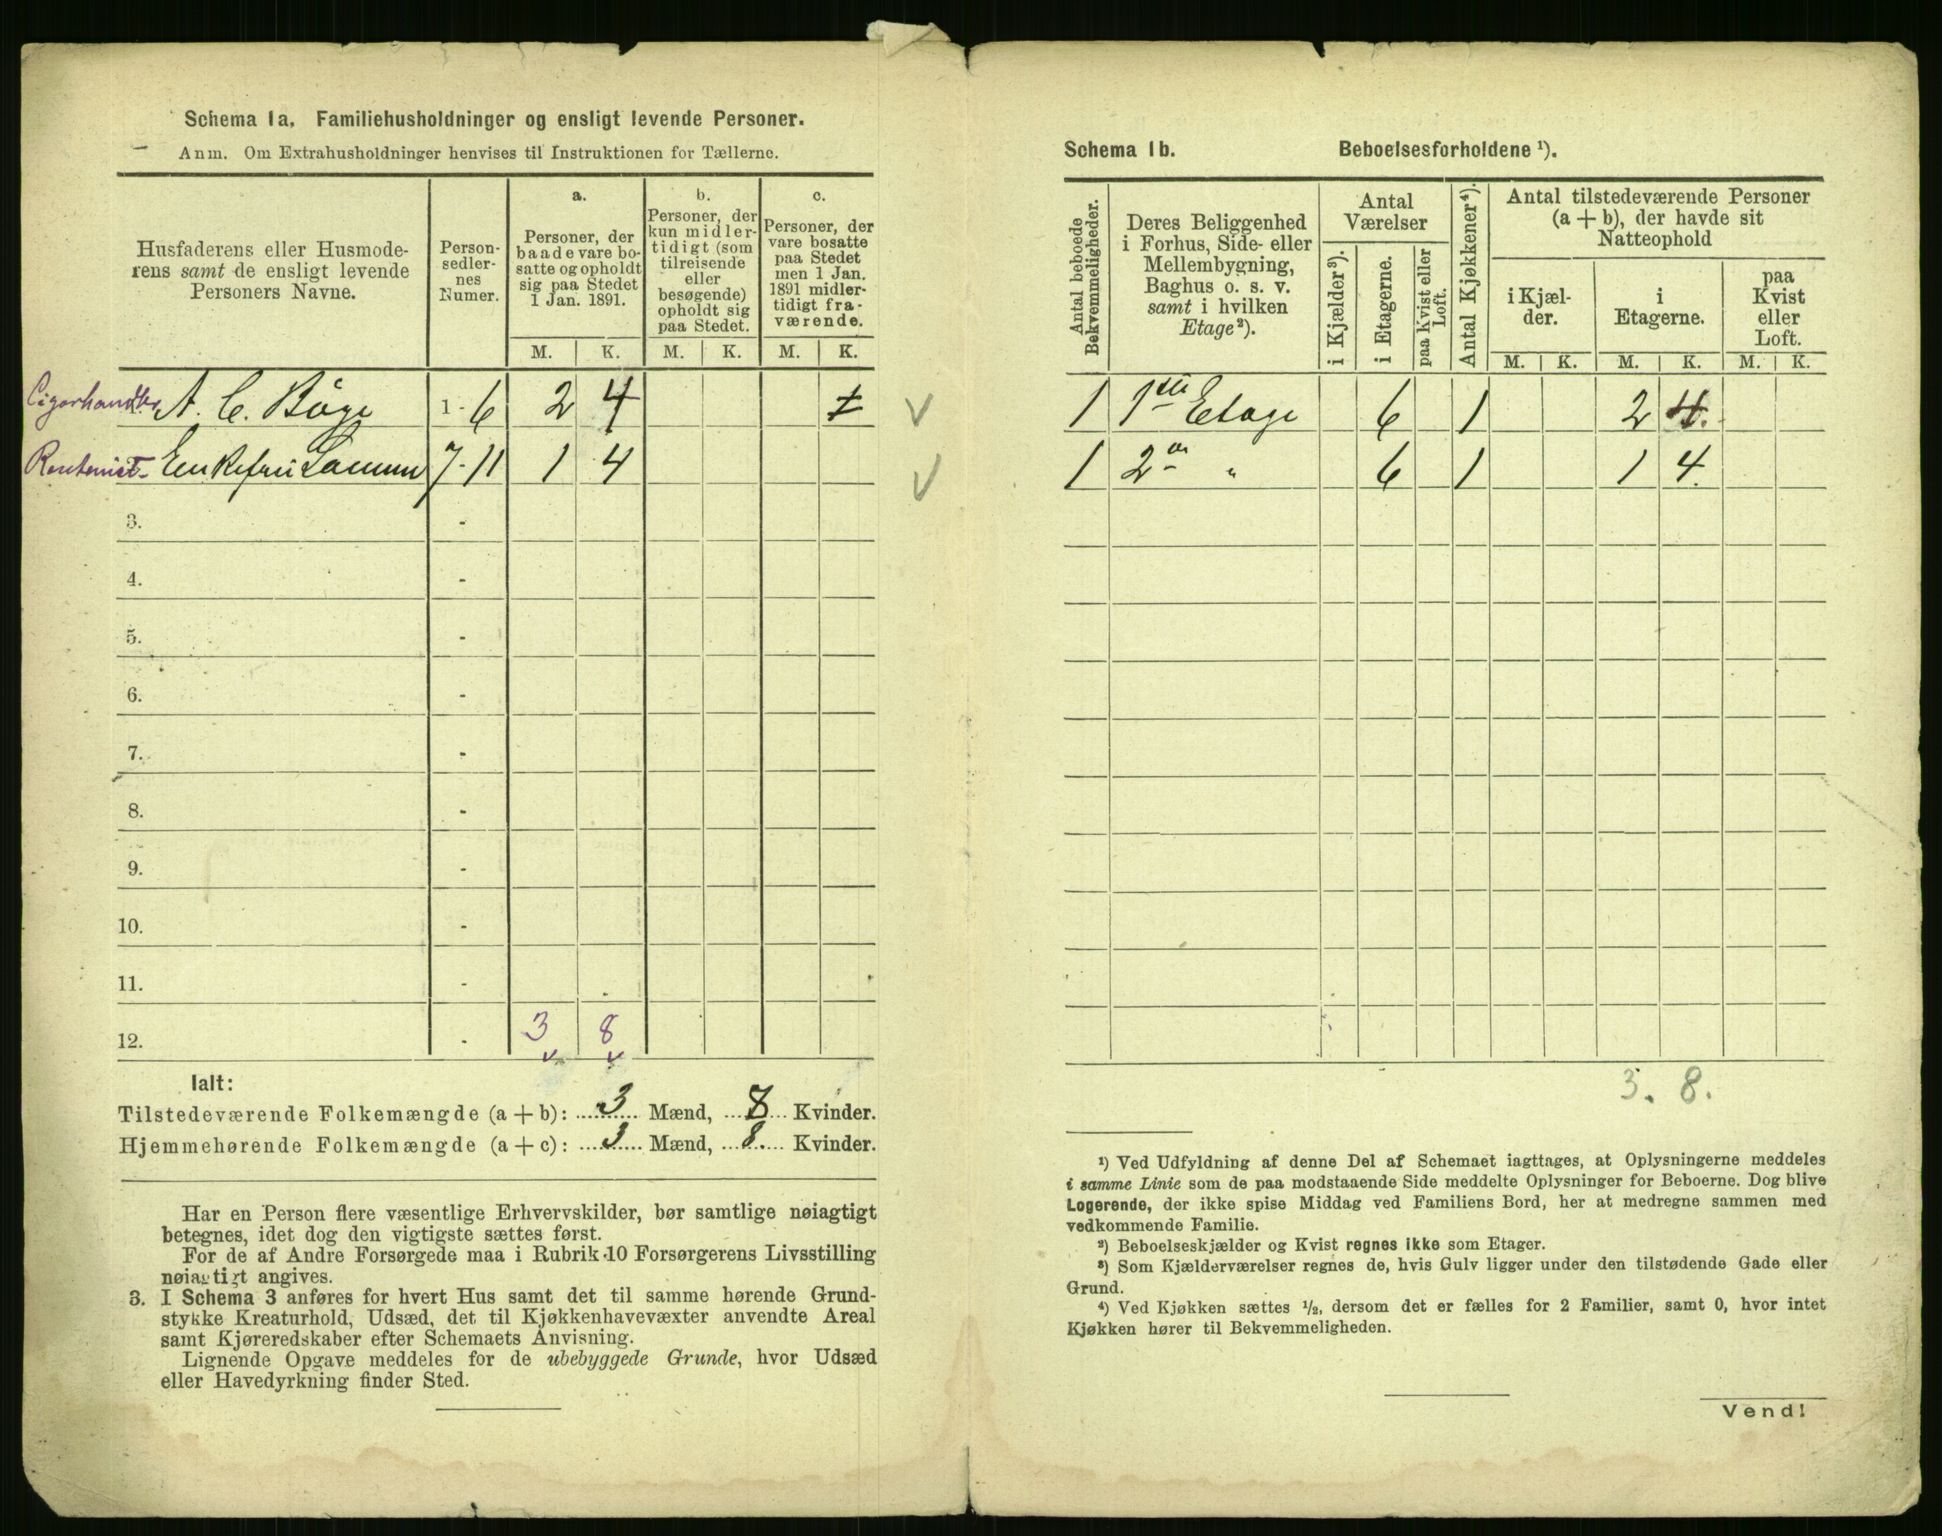 Schema 1a. Familiehusholdninger og ensligt levende Personer.
Anm. Om Extrahusholdninger henvises til Instruktionen for Tællerne.
Husfaderens eller Husmode-
rens samt de ensligt levende
Personers Navne.
Person-
sedler-
nes
Numer.
a.
Personer, der
baade vare bo-
satte og opholdt
sig paa Stedet
1 Jan. 1891.
b.
Personer, der
kun midler-
tidigt (som
tilreisende
eller
besøgende)
opholdt sig
paa Stedet.
c.
Personer, der
vare bosatte
paa Stedet
men 1 Jan.
1891 midler-
tidigt fra-
værende.
M. K. M. K. M. K.
Cigarhandler A. C. Böge 1 - 6 2 4
Rentenist Enkefru 7-11 1 4
3. -
4. -
5. -
6. -
7. -
8. -
9. -
10. -
11. -
12. - 3 8
Ialt:
Tilstedeværende Folkemængde (a + b): 3 Mænd, 8 Kvinder.
Hjemmehørende Folkemængde (a + c): 3 Mænd, 8. Kvinder.
Har en Person flere væsentlige Erhvervskilder, bør samtlige nøiagtigt
betegnes, idet dog den vigtigste sættes først.
For de af Andre Forsørgede maa i Rubrik 10 Forsørgerens Livsstilling
nøiagtigt angives.
3. I Schema 3 anføres for hvert Hus samt det til samme hørende Grund-
stykke Kreaturhold, Udsæd, det til Kjøkkenhavevæxter anvendte Areal
samt Kjøreredskaber efter Schemaets Anvisning.
Lignende Opgave meddeles for de ubebyggede Grunde, hvor Udsæd
eller Havedyrkning finder Sted.
Schema 1b. Beboelsesforholdene ¹).
Antal beboede
Bekvemmeligheder.
Deres Beliggenhed
i Forhus, Side- eller
Mellembygning,
Baghus o. s. v.
samt i hvilken
Etage²).
Antal
Værelser
i Kjælder³).
i Etagerne.
paa Kvist eller
Loft.
Antal Kjøkkener⁴).
Antal tilstedeværende Personer
(a + b), der havde sit
Natteophold
i Kjæl-
der.
i
Etagerne.
paa
Kvist
eller
Loft.
M. K. M. K. M. K.
1 1ste Etage 6 1 2 4.
1 2den " 6 1 1 4.
3. 8.
¹) Ved Udfyldning af denne Del af Schemaet iagttages, at Oplysningerne meddeles
i samme Linie som de paa modstaaende Side meddelte Oplysninger for Beboerne. Dog blive
Logerende, der ikke spise Middag ved Familiens Bord, her at medregne sammen med
vedkommende Familie.
²) Beboelseskjælder og Kvist regnes ikke som Etager.
³) Som Kjælderværelser regnes de, hvis Gulv ligger under den tilstødende Gade eller
Grund.
⁴) Ved Kjøkken sættes ½, dersom det er fælles for 2 Familier, samt 0, hvor intet
Kjøkken hører til Bekvemmeligheden.
Vend!